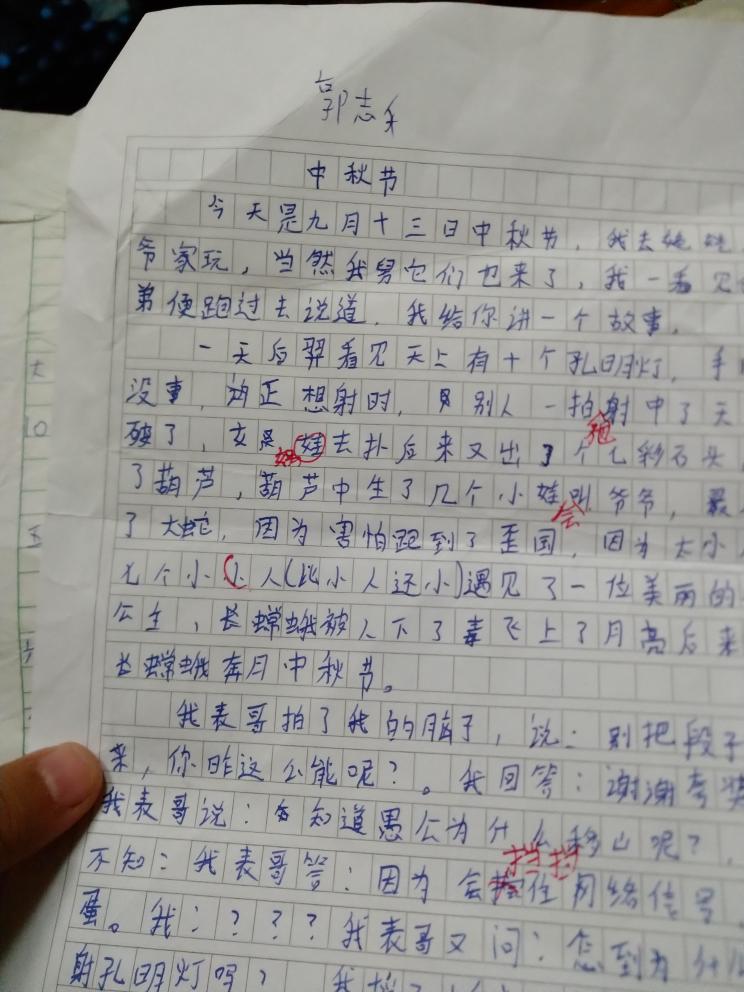 郭志
中秋节
今天是九月十三日中秋节，我去姥姥
爷家玩，当然我舅它们也来了，我一看见
弟便跑过去说道，我给你讲一个故事，
一天后羿看见天上有十个孔明灯，手
没事，正想射时，别人一拍射中了天
破了，女娃去扑后来又出了个七彩石头
了葫芦，葫芦中生了几个小娃叫爷爷，最
了大蛇，因为害怕跑到了歪国，因为太小
七个小小人(比小人还小)遇见了一位美丽的
公主，长嫦娥被人下了毒飞上了月亮后来
长嫦娥奔月中秋节。
我表哥拍了我的脑子，说：别把段子
来，你咋这么能呢？。我回答：谢谢夸奖
我表哥说：知道愚公为什么移山呢？，
挡挡
不知：我表哥答：因为会住网络信号
蛋。我：？？？我表哥又问：怎到为什
射孔明灯吗？